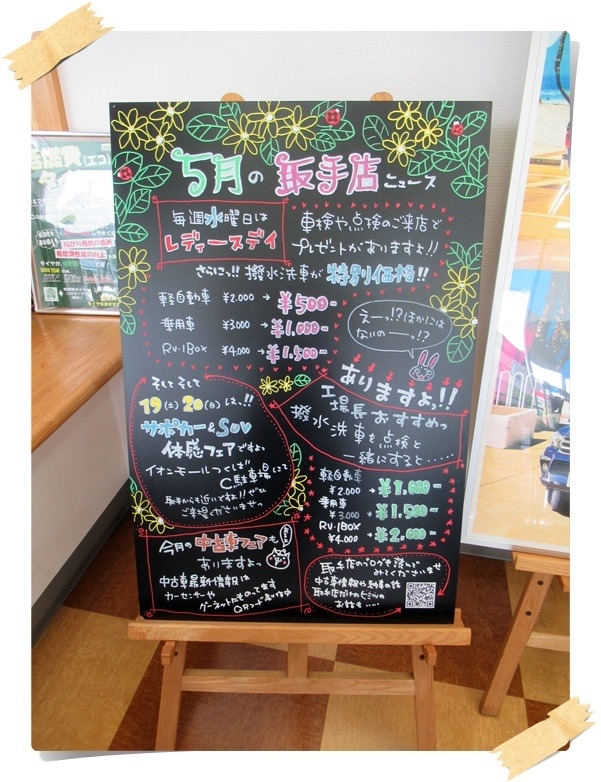 5月の 取手店ニュース
毎週水曜日は
レディースデイ
車検や点検のご来店で
プレゼントがありますよ!!
さらにっ!! 撥水洗車が 特別価格!!
軽自動車 ¥2.000 → ¥500-
乗用車 ¥3.000 → ¥1.000-
RV・1BOX ¥4.000 → ¥1.500-
えーっ!? ほかには
ないのーっ!?
ありますよ!!
工場長おすすめっ
撥水洗車を点検と
一緒にすると……
軽自動車
¥2.000 → ¥1.000-
乗用車
¥3.000 → ¥1.500-
RV・1BOX
¥4.000 → ¥2.000-
そしてそして
19(土) 20(日)は、!!
サポカー&SUV
体感フェアですよっ
イオンモールつくば
C駐車場にて
取手からも近いですよ!! ぜひ
ご来場くださいませ
今月の中古車フェアも
ありますよっ
中古車最新情報は
カーセンサーや
グーネットにものってます
取手店のブログも覗いて
みてくださいませ
中古車情報や新車の話
取手店だけのヒミツの
お話も…
燃費
(エコ)
タイヤ
転がり抵抗の低減
低燃費性能の向上